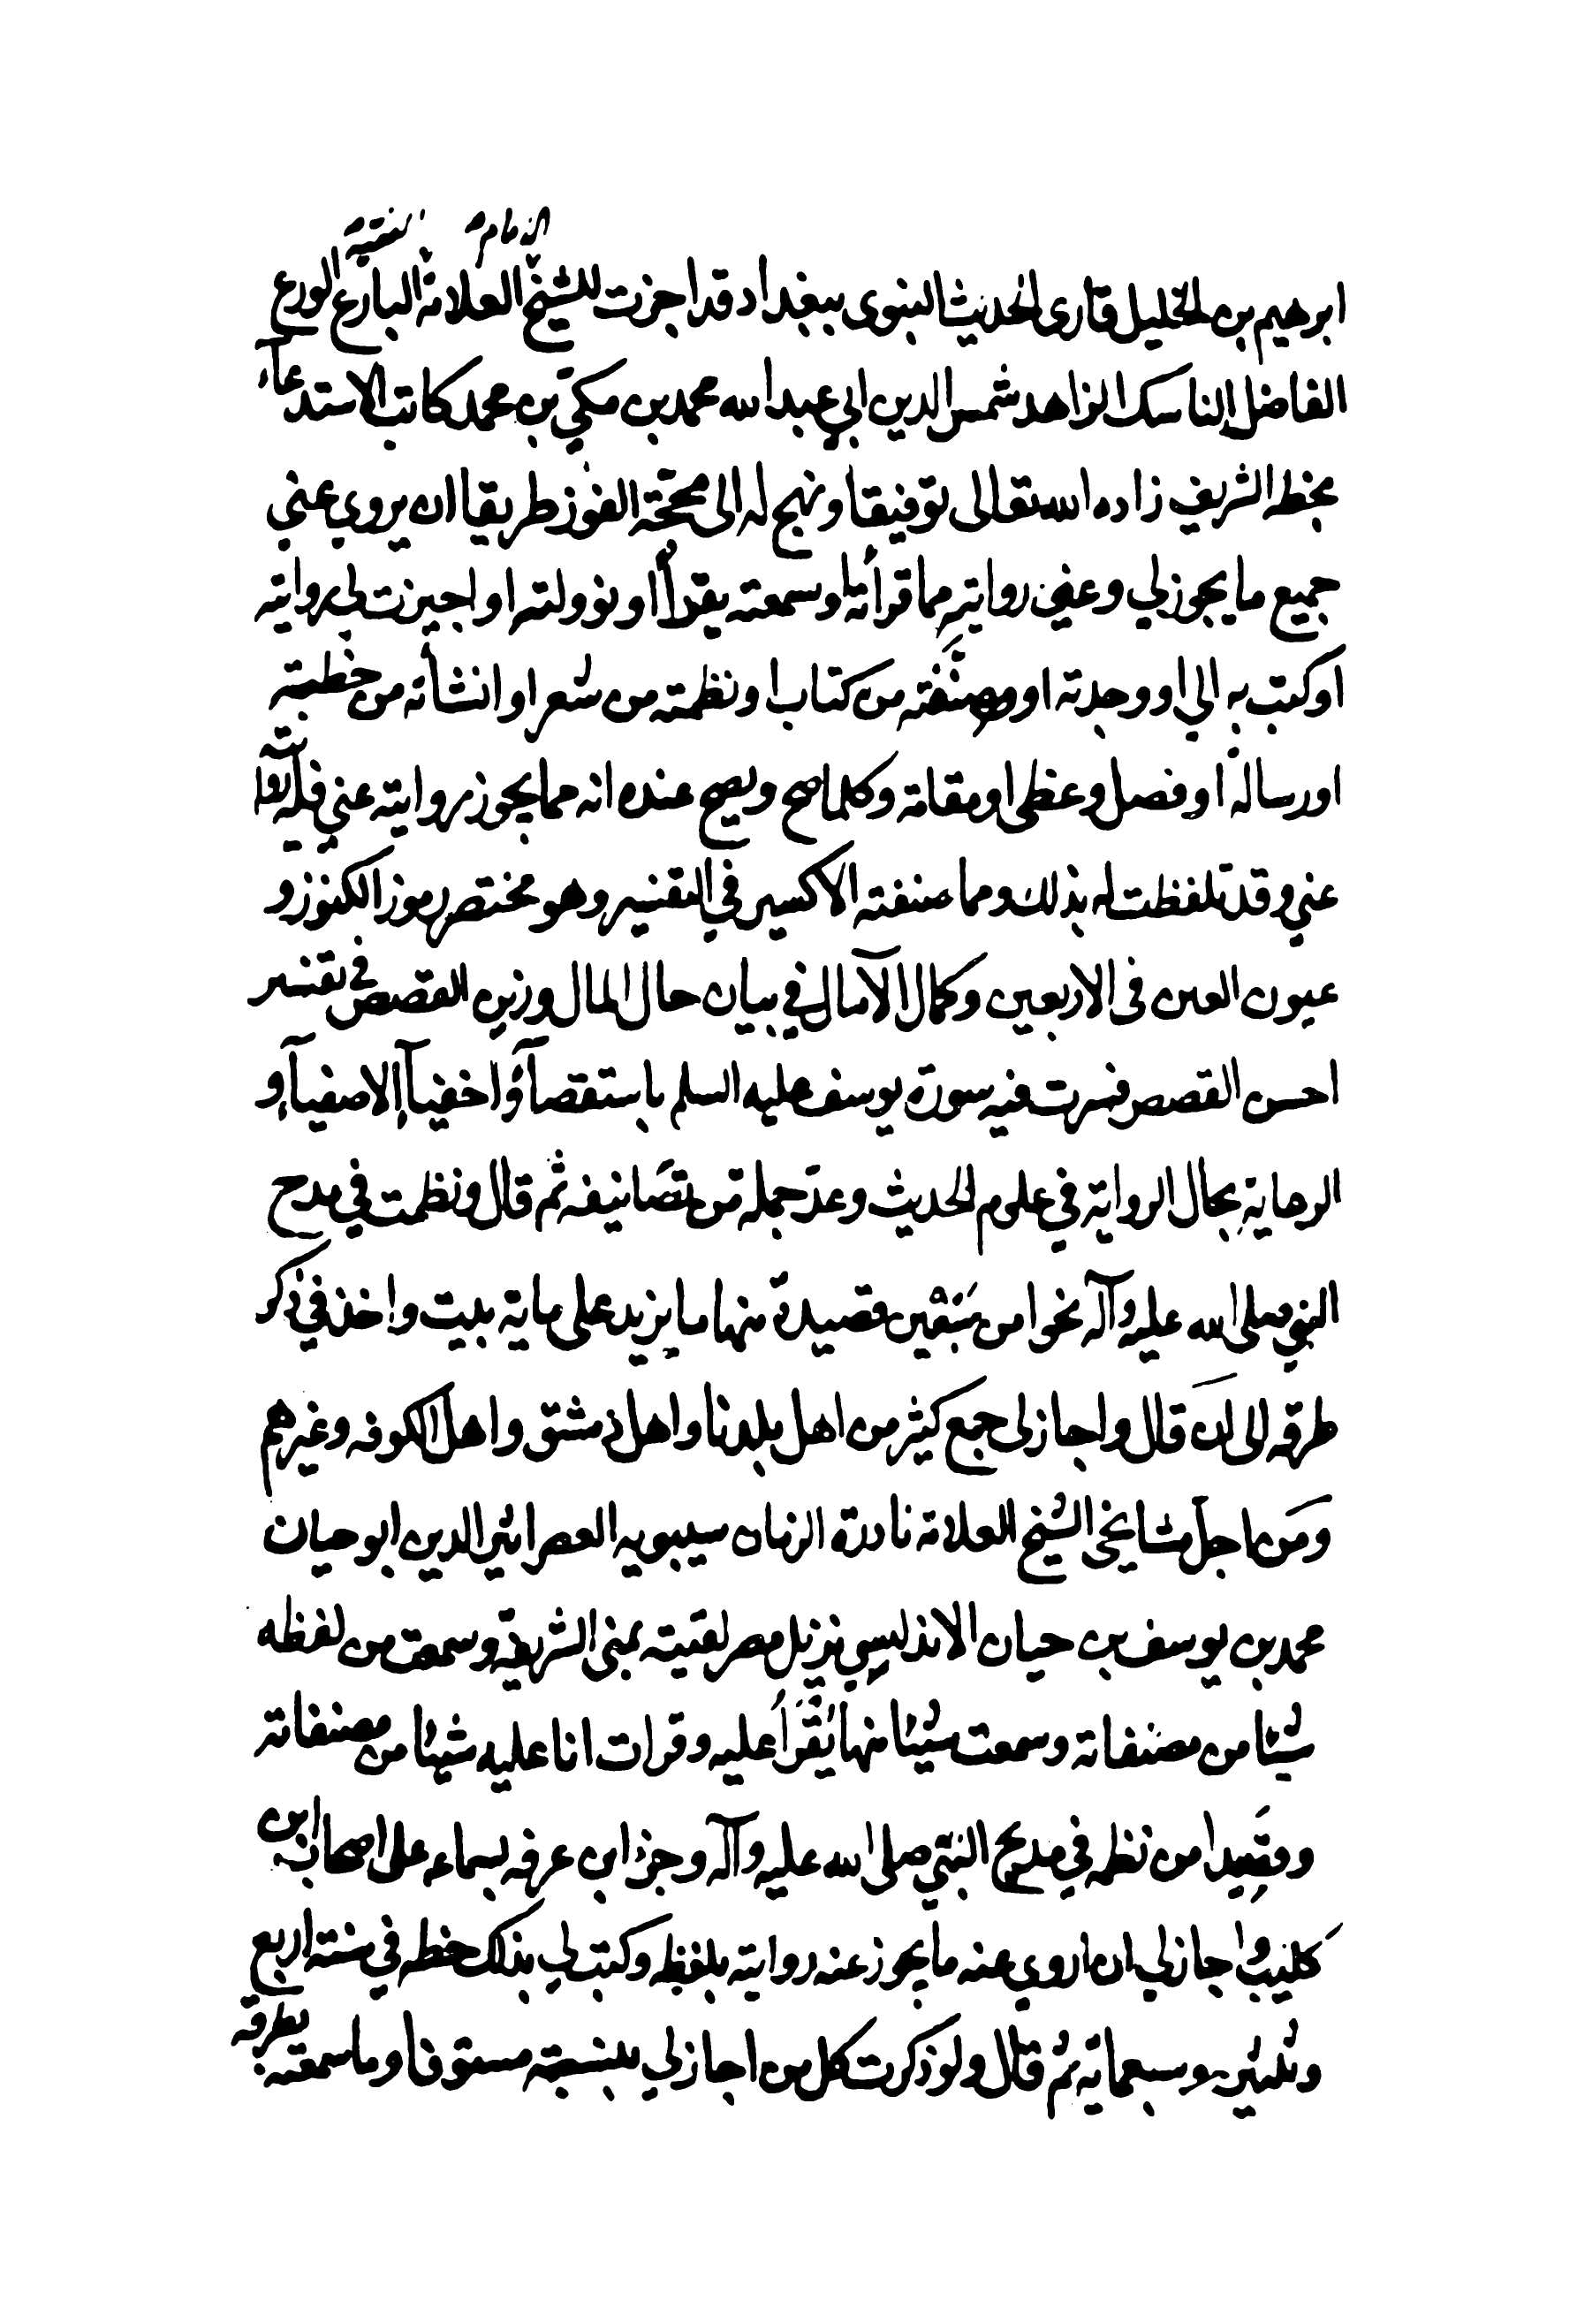 الامام الفقيه
ابرهيم بن الخليل قارى الحديث النبوى ببغداد قد اجزت للشيخ العلامة البارع الورع
الفاضل الناسك الزاهد شمس الدين ابي عبد الله محمد بن مكي بن محمد كاتب الاستدعاء
بخطه الشريف زاده الله تعالى توفيقا ونهج له الى محجة الفوز طريقا ان يروي عني
جميع ما يجوز لي وعني روايته مما قرأته او سمعته يقرأ او نوولته او اجيزت لي روايته
او كتب به الي او وجدته او صنفته من كتاب او نظمته من شعر او انشأته من خطبة
او رسالة او فصل وعظى او مقامة وكلما صح ويصح عنده انه مما يجوز روايته عني فله روايته
عني وقد تلفظت له بذلك ومما صنفته الاكسير في التفسير وهو مختصر رموز الكنوز و
عيون العين في الاربعين وكمال الآمال في بيان حال المال وزين القصص في تفسير
احسن القصص فسرت فيه سورة يوسف عليه السلم باستقصآء واخفيآء الاصفيآء و
الرعاية بحال الرواية في علوم الحديث وعد جملة من تصانيفه ثم قال ونظمت في مدح
النبي صلى الله عليه وآله نحوا من قصيدة منها ما يزيد على ماية بيت واخذ في ذكر
طرقه الى ان قال واجاز لى جمع كثير من اهل بلدنا واهل دمشق واهل الكوفه وغيرهم
ومن اجل مشايخى الشيخ العلامة نادرة الزمان سيبويه العصر اثير الدين ابو حيان
محمد بن يوسف بن حيان الاندلسي نزيل مصر لقيته بمنى الشريفة وسمعت من لفظه
شيئا من مصنفاته وسمعت شيئا منها يُقْرَأُ عليه وقرات انا عليه شيئا من مصنفاته
وقصيدا من نظمه في مديح النبي صلى الله عليه وآله وجزء ابن عرفه بسماعه على اصحاب ابن
كليب واجاز لي ان اروي عنه ما يجوز عنه روايته بلفظه وكتب لي بذلك خطه في سنة اربع
وثلثين وسبعماية ثم قال ولو ذكرت كل من اجاز لي بنسبته مستوفا وما سمعته بطرقه